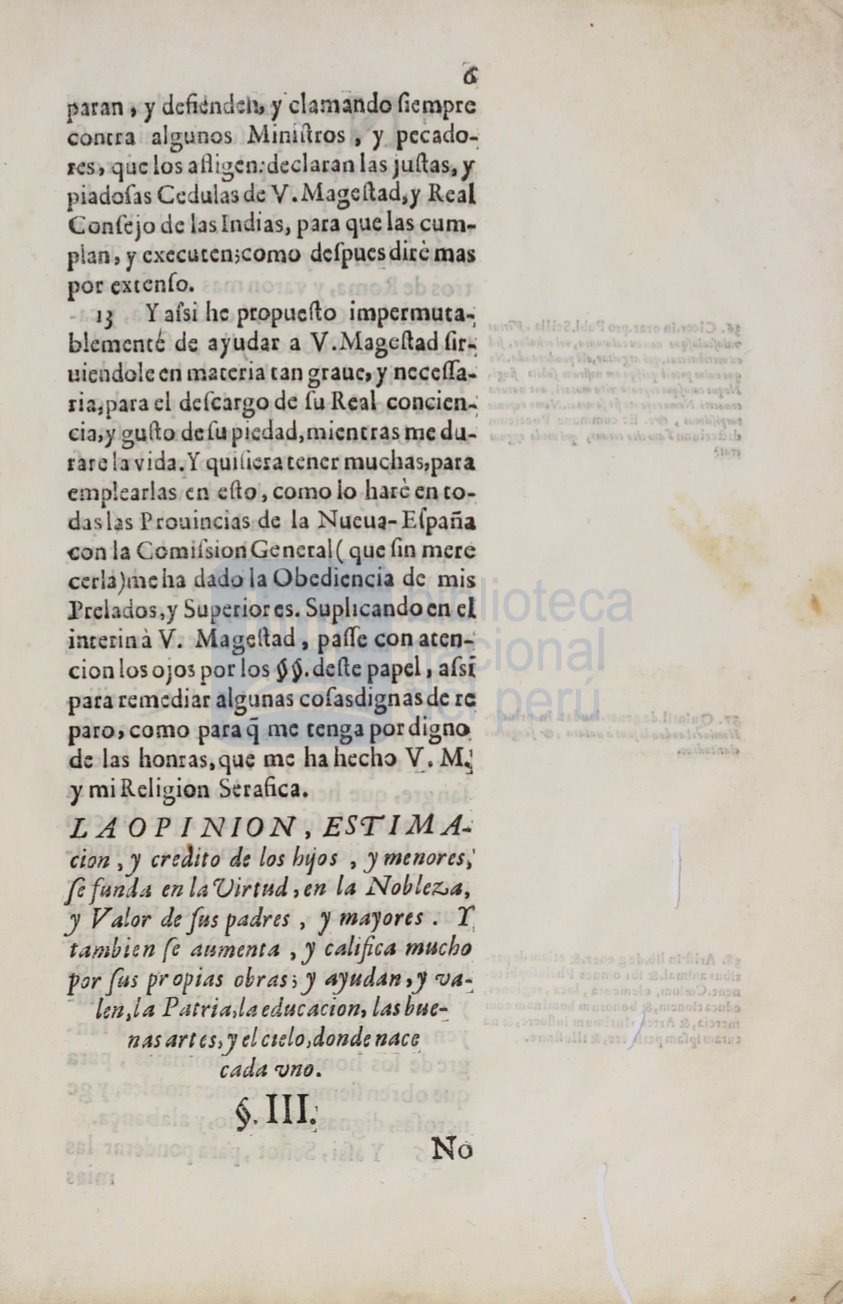 6
paran, y defienden, y clamando ſiempre
contra algunos Miniſtros, y pecado-
res, que los afligen: declaran las juſtas, y
piadoſas Cedulas de V. Mageſtad, y Real
Conſejo de las Indias, para que las cum-
plan, y executen; como deſpues dirè mas
por extenſo.
13 Y aſsi he propueſto impermuta-
blemente de ayudar a V. Mageſtad ſir-
uiendole en materia tan graue, y neceſſa-
ria, para el deſcargo de ſu Real concien-
cia, y guſto de ſu piedad, mientras me du-
rare la vida. Y quiſiera tener muchas, para
emplearlas en eſto, como lo harè en to-
das las Prouincias de la Nueua-Eſpaña
con la Comiſsion General (que ſin mere
cerla) me ha dado la Obediencia de mis
Prelados, y Superiores. Suplicando en el
interin à V. Mageſtad, paſſe con aten-
cion los ojos por los §§. deſte papel, aſsi
para remediar algunas coſas dignas de re
paro, como para q̃ me tenga por digno
de las honras, que me ha hecho V. M.
y mi Religion Serafica.
LA OPINION, ESTIMA-
cion, y credito de los hijos, y menores,
ſe funda en la Virtud, en la Nobleza,
y Valor de ſus padres, y mayores. Y
tambien ſe aumenta, y califica mucho
por ſus propias obras; y ayudan, y va-
len, la Patria, la educacion, las bue-
nas artes, y el cielo, donde nace
cada vno.
§. III.
No
biblioteca
nacional
del perú